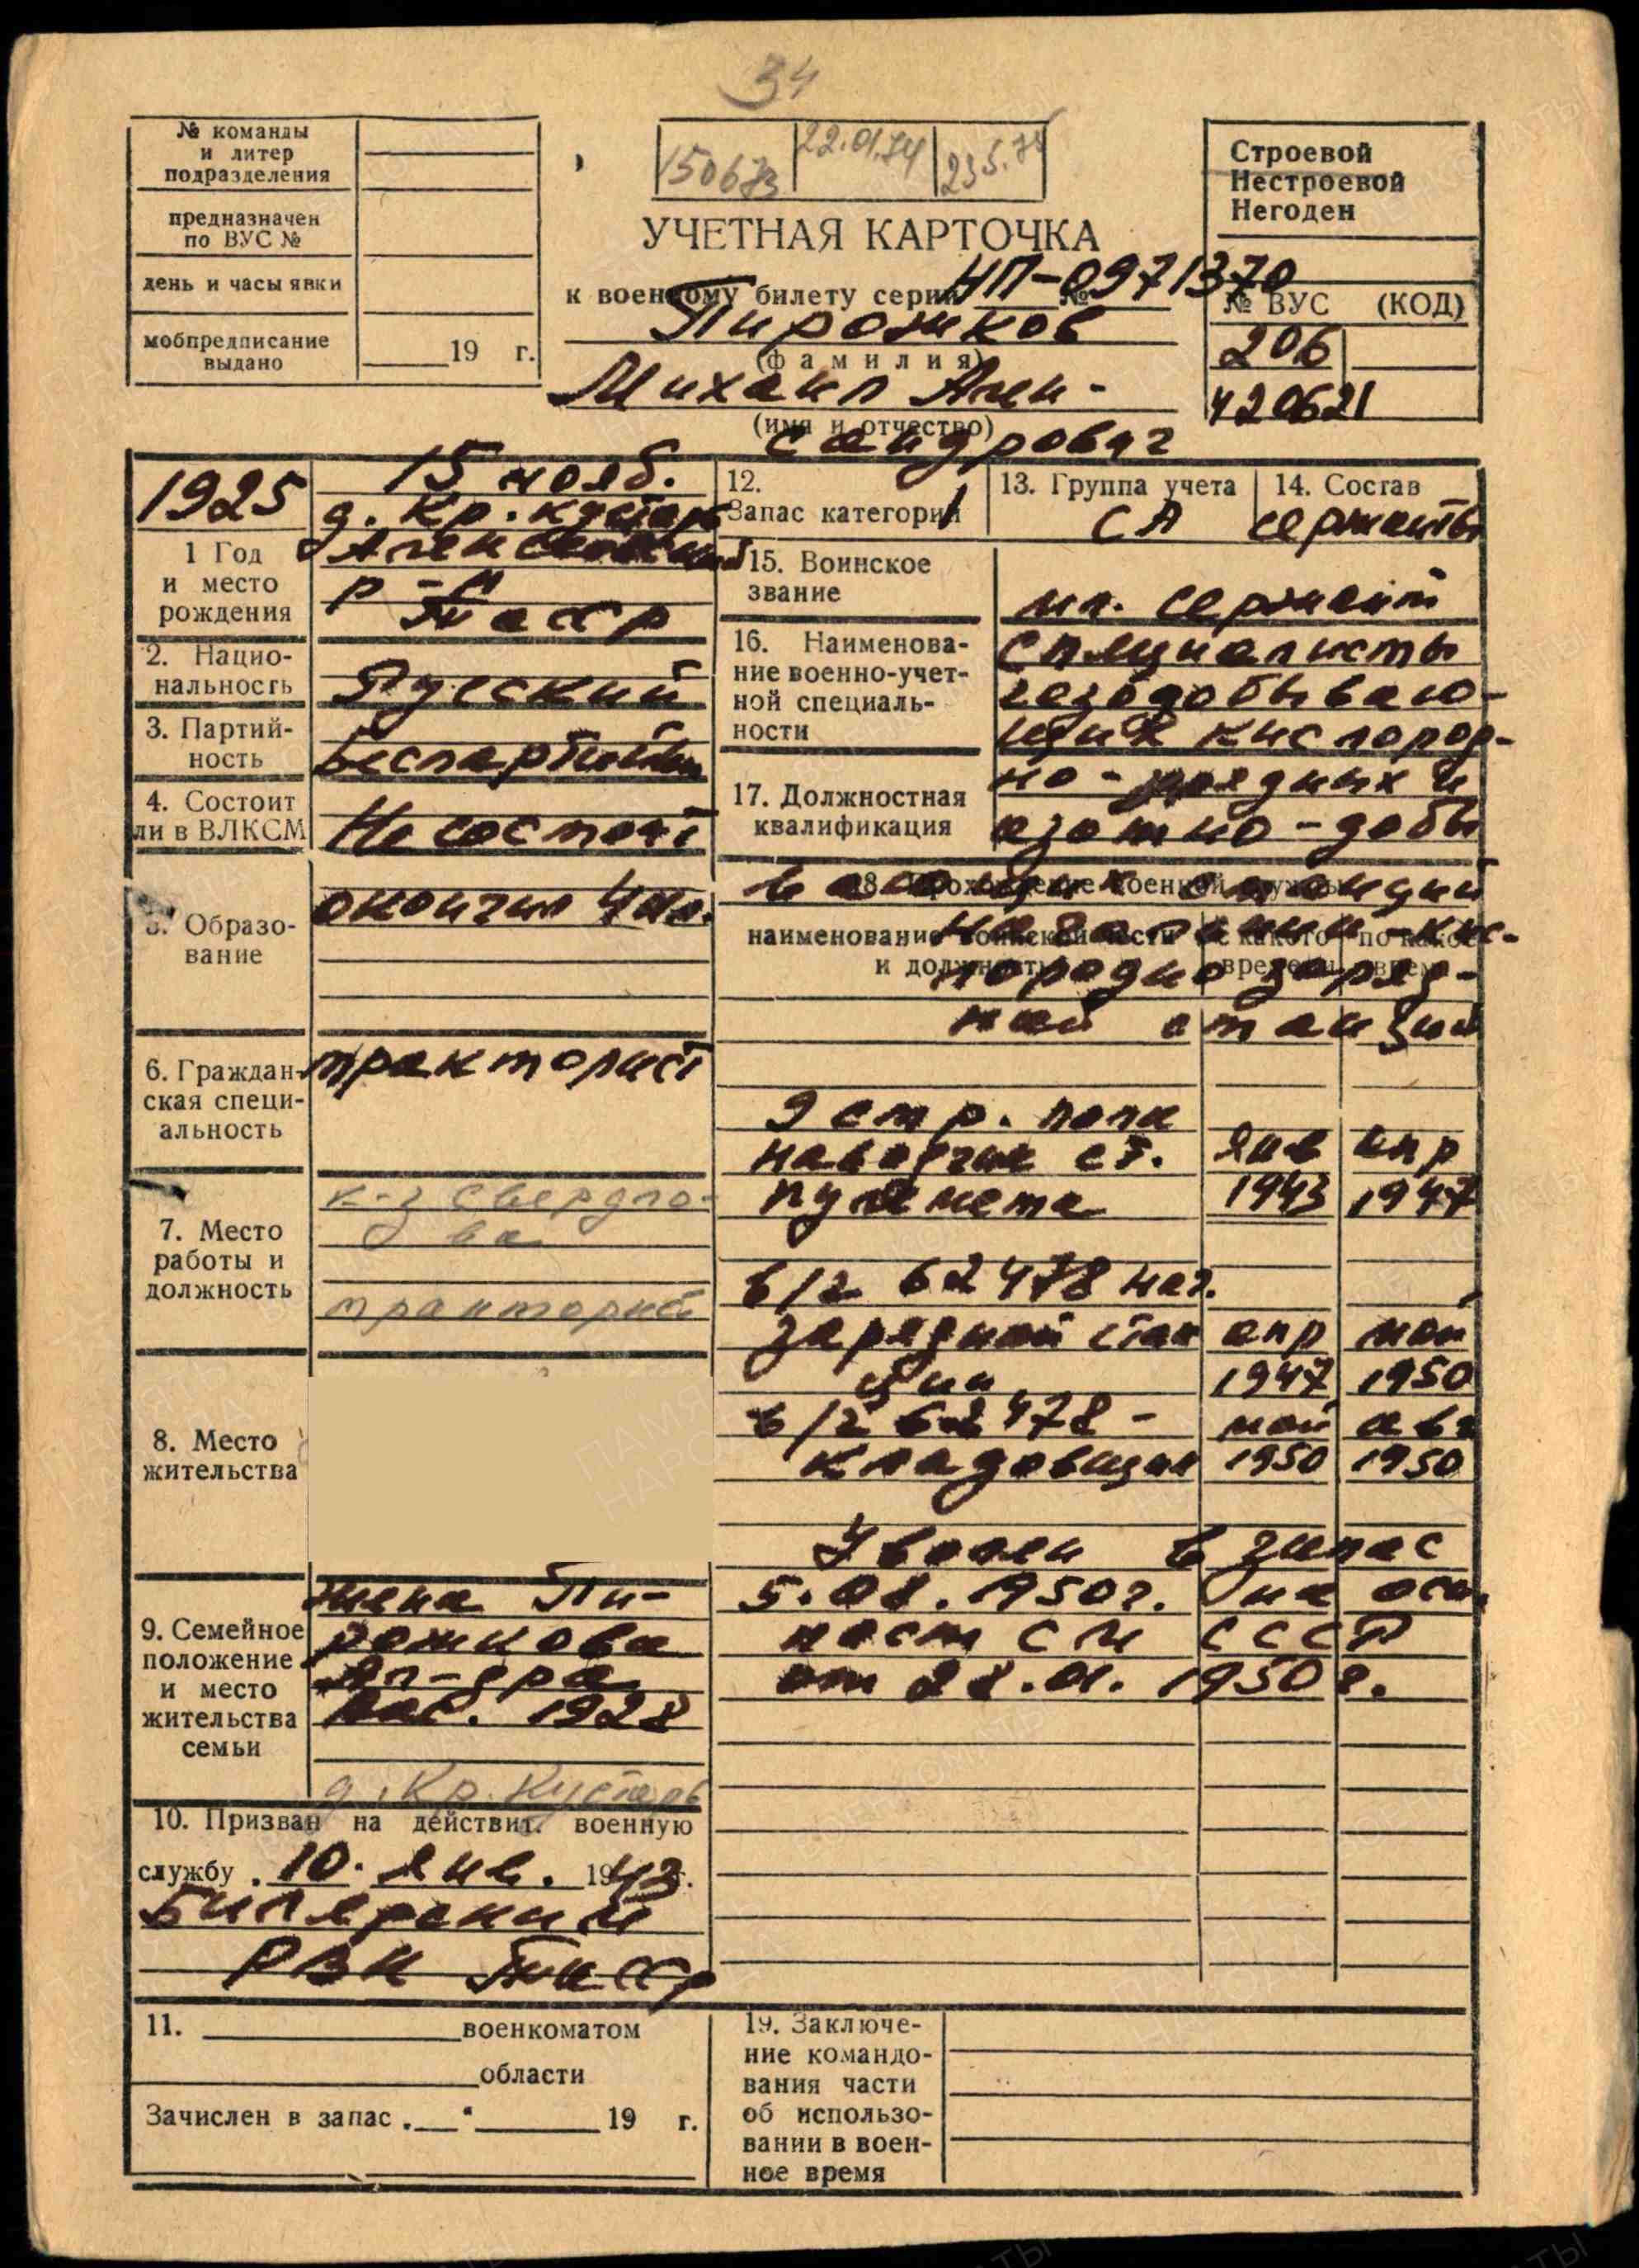 34
№ команды
и литер
подразделения
предназначен
по ВУС №
день и часы явки
мобпредписание
выдано
19 г.
150673 22.01.74 23.5.75
УЧЕТНАЯ КАРТОЧКА
к военному билету серии НП-0971370
Пирожков
(фамилия)
Михаил Алек-
(имя и отчество)
сандрович
Строевой
Нестроевой
Негоден
№ ВУС (КОД)
206
420621
1925
1 Год
и место
рождения
15 нояб.
д. Кр. Кустарь
р-н
ТАССР
2. Нацио-
нальность
Русский
3. Партий-
ность
беспартийный
4. Состоит
ли в ВЛКСМ
Не состоит
5. Образо-
вание
окончил 4 кл.
6. Граждан-
ская специ-
альность
тракторист
7. Место
работы и
должность
к-з Свердло-
ва
тракторист
8. Место
жительства
9. Семейное
положение
и место
жительства
семьи
жена Пи-
рожкова
Ал-дра
1928
д. Кр. Кустарь
10. Призван на действит. военную
службу 10. янв. 1943 г.
Билярский
РВК ТАССР
11. военкоматом
области
Зачислен в запас 19 г.
12.
Запас категории 1
13. Группа учета
СА
14. Состав
сержанты
15. Воинское
звание
мл. сержант
16. Наименова-
ние военно-учет-
ной специаль-
ности
17. Должностная
квалификация
специалисты
газодобываю-
щих кислород-
но-зарядных и
азотно-добы
18. Прохождение военной службы
вающих станций
наименование воинской части с какого по какое
и должность времени время
кис-
лородно заряд-
ной станций
9 стр. полк
наводчик ст. янв апр
пулемета 1943 1947
в/ч 62478 нач.
зарядной стан апр май
ции 1947 1950
в/ч 62478 - май авг
кладовщик 1950 1950
Уволен в запас
5.08.1950г. на осн.
пост СМ СССР
от 28.01.1950г.
19. Заключе-
ние командо-
вания части
об использо-
вании в воен-
ное время